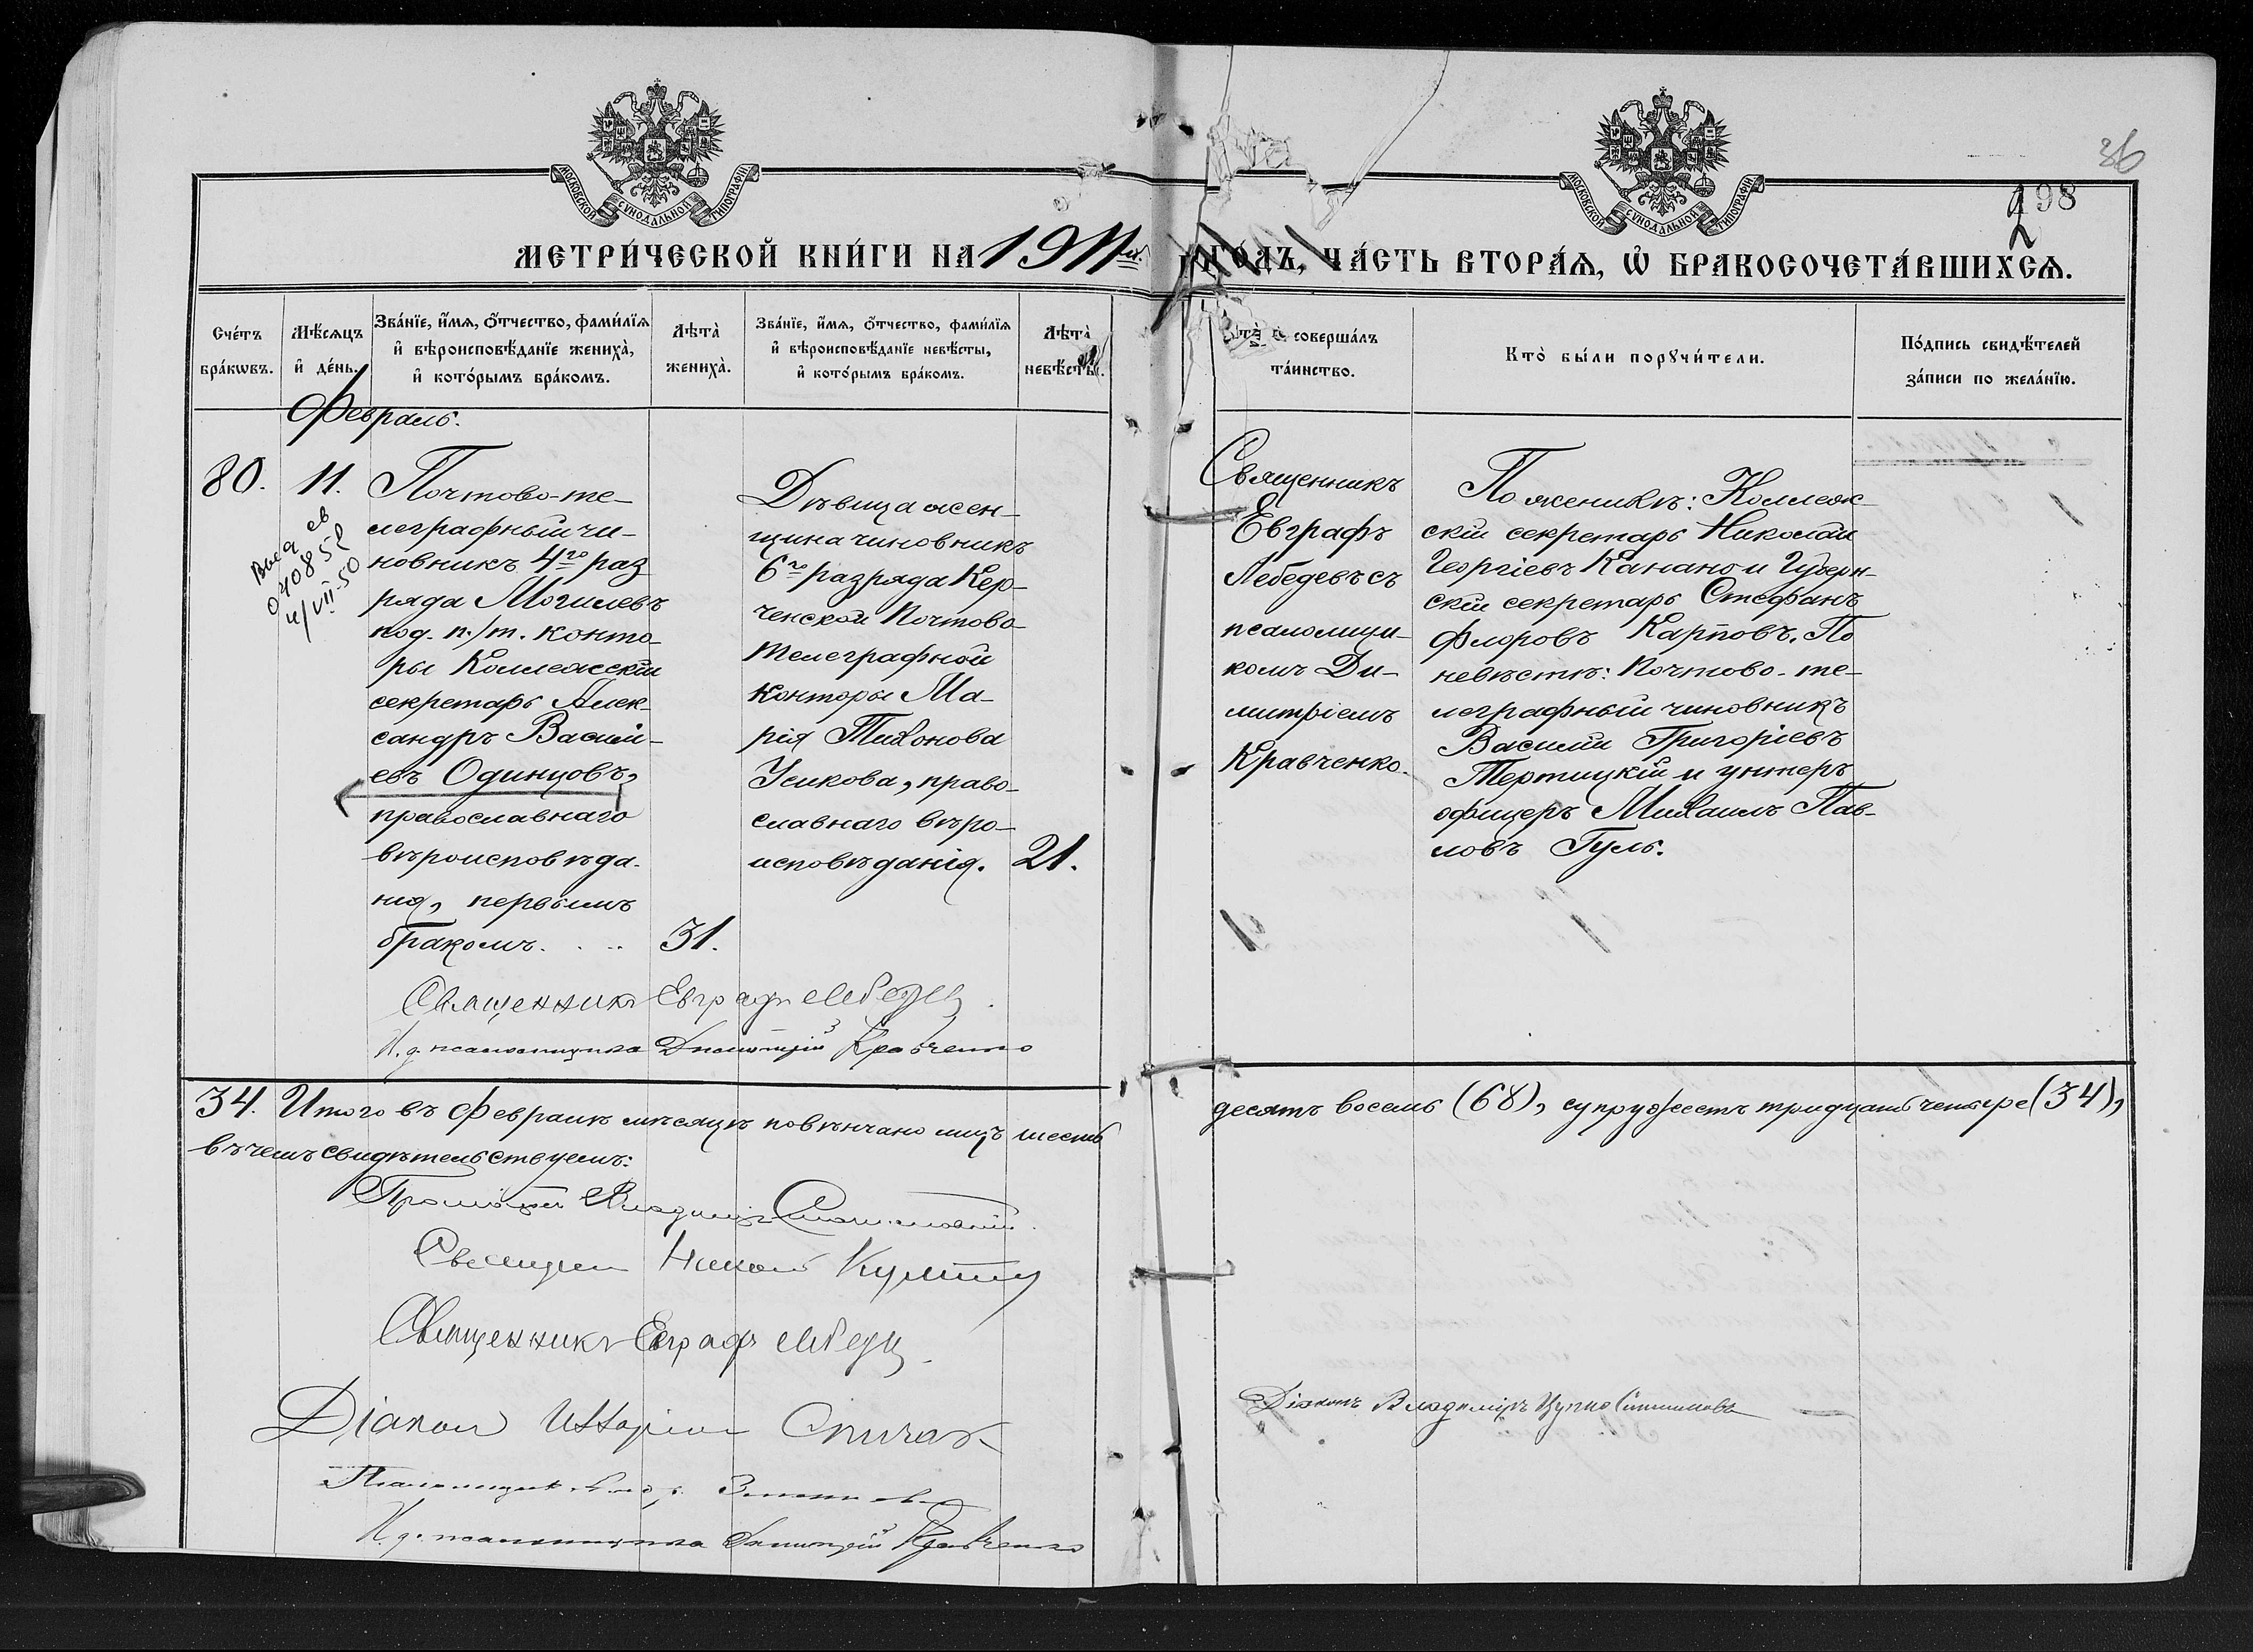 МОСКОВСКОЙ СѴНОДАЛЬНОЙ ТИПОГРАФІИ
МОСКОВСКОЙ СѴНОДАЛЬНОЙ ТИПОГРАФІИ
36
198
МЕТРИ́ЧЕСКОЙ КНИ́ГИ НА 1911 й.
ГО́ДЪ, ЧА́СТЬ ВТОРА́Ѧ, Ѡ҆ БРАКОСОЧЕТА́ВШИХСѦ.
Сче́тъ
бра́кѡвъ.
Мѣ́сѧцъ
и҆ де́нь.
Зва́нїе, и҆́мѧ, ѻ҆́тчество, фами́лїѧ
и҆ вѣроисповѣ́данїе жениха̀,
и҆ кото́рымъ бра́комъ.
Лѣта̀
жениха̀.
Зва́нїе, и҆́мѧ, ѻ҆́тчество, фами́лїѧ
и҆ вѣроисповѣ́данїе невѣ́сты,
и҆ кото́рымъ бра́комъ.
Лѣта̀
невѣ́сты.
соверша́лъ
та́инство.
Кто̀ бы́ли порꙋчи́тели.
По́дпись свидѣ́телей
за́писи по жела́нїю.
Февраль.
80.
11.
Выд св
040852
4/VII-50
Почтово-те-
леграфный чи-
новникъ 4го раз
ряда Могилевъ
под. п./т. конто-
ры Коллежскій
секретарь Алек-
сандръ Василі-
евъ Одинцовъ,
православнаго
вѣроисповѣда-
нія, первымъ
бракомъ.
31.
Дѣвица жен-
щина чиновникъ
6го разряда Кер-
ченской Почтово-
Телеграфной
Конторы Ма-
рія Тихонова
Усикова, право-
славнаго вѣро-
исповѣданія.
21.
Священникъ
Евграфъ
Лебедевъ съ
псаломщи-
комъ Ди-
митріемъ
Кравченко.
По женихѣ: Коллеж-
скій секретарь Николай
Георгіевъ Канано и Губерн-
скій секретарь Стефанъ
Флоровъ Карповъ. По
невѣстѣ: Почтово-те-
леграфный чиновникъ
Василій Григоріевъ
Тертицкій и унтеръ
офицеръ Михаилъ Пав-
ловъ Гуль.
Священникъ Евграфъ Лебедевъ.
И. д. псаломщика Димитрій Кравченко
34. Итого въ Февралѣ мѣсяцѣ повѣнчано лицъ шесть
десятъ восемь (68), супружествъ тридцать четыре (34),
въ чемъ свидѣтельствуемъ:
Протоіерей Владиміръ
Священникъ Николай
Священникъ Евграфъ Лебедевъ.
Діаконъ
Діаконъ Владиміръ
Псаломщикъ
И. д. псаломщика Димитрій Кравченко